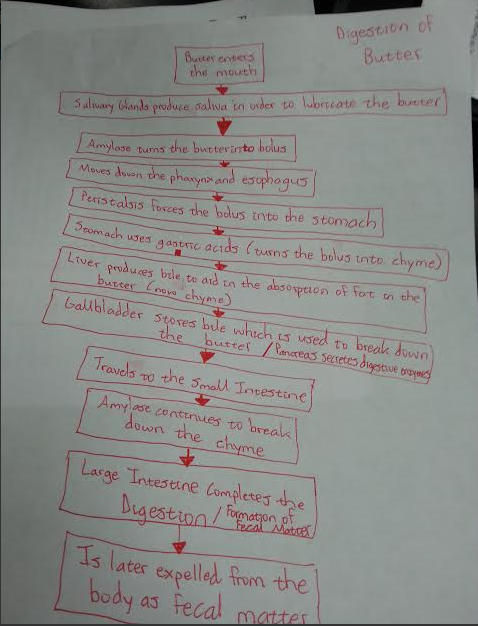 Digestion of
Butter
Butter enters
the mouth
Salivary Glands produce saliva in order to lubricate the butter
Amylase turns the butter into bolus
Moves down the pharynx and esophagus
Peristalsis forces the bolus into the stomach
Stomach uses gastric acids (turns the bolus into chyme)
Liver produces bile to aid in the absorption of fat in the
butter (now chyme)
Gallbladder stores bile which is used to break down
the butter / Pancreas secretes digestive enzymes
Travels to the small Intestine
Amylase continues to break
down the chyme
Large Intestine Completes the
Digestion / Formation of
Fecal Matter
Is later expelled from the
body as fecal matter